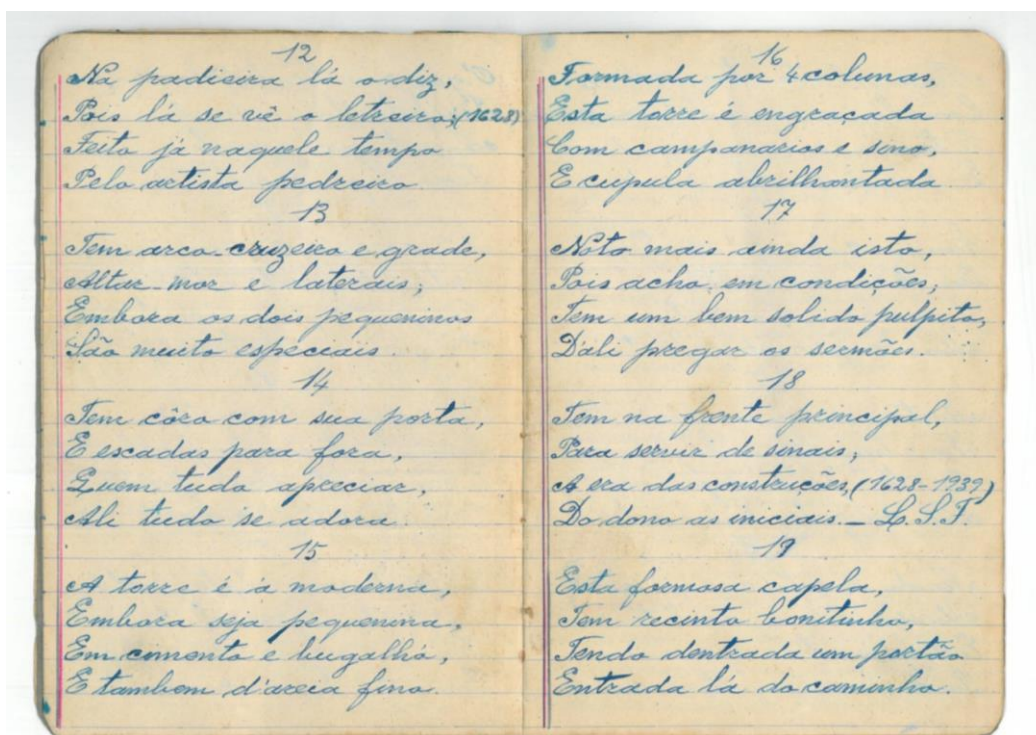 12
Na padieira lá o diz,
Pois lá se vê o letreiro; (1628)
Feito já naquele tempo
Pelo artista pedreiro.
13
Tem arco-cruzeiro e grade,
Altar-mor e laterais;
Embora os dois pequeninos
São muito especiais.
14
Tem côro com sua porta,
E escadas para fora,
Quem tudo apreciar,
Ali tudo se adora.
15
A torre é à moderna,
Embora seja pequenina,
Em cimento e bugalhó,
E tambem d'areia fina.
16
Formada por 4 colunas,
Esta torre é engraçada
Com campanarios e sino,
E cupula abrilhantada.
17
Noto mais ainda isto,
Pois acho, em condições;
Tem um bem solido pulpito,
D'ali pregar os sermões.
18
Tem na frente principal,
Para servir de sinais;
A era das construções, (1628-1939)
Do dono as iniciais. — L.S.T.
19
Esta formosa capela,
Tem recinto bonitinho,
Tendo dentrada um portão
Entrada lá do caminho.